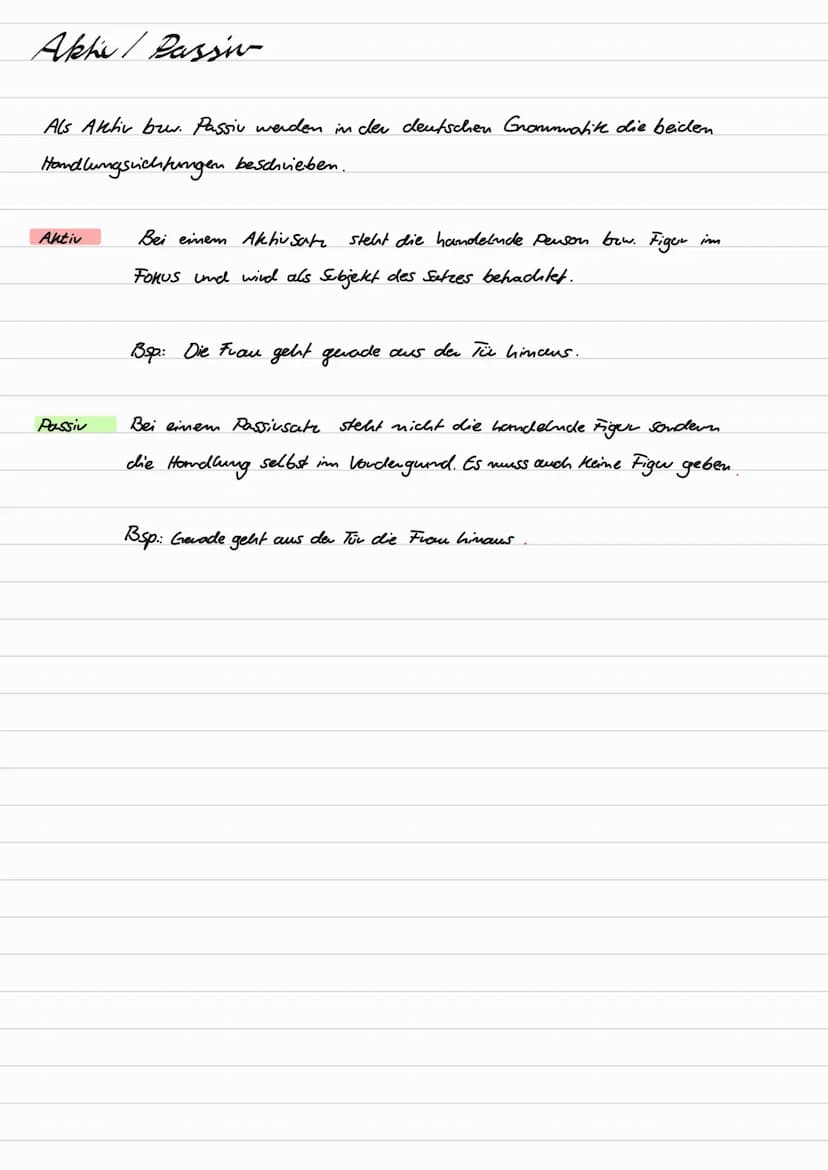 Aktiv / Passiv
Als Aktiv bzw. Passiv werden in der deutschen Grammatik die beiden
Handlungsrichtungen beschrieben.
Aktiv Bei einem Aktivsatz steht die handelnde Person bzw. Figur im
Fokus und wird als Subjekt des Satzes betrachtet.
Bsp: Die Frau geht gerade aus der Tür hinaus.
Passiv Bei einem Passivsatz steht nicht die handelnde Figur sondern
die Handlung selbst im Vordergrund. Es muss auch keine Figur geben.
Bsp.: Gerade geht aus der Tür die Frau hinaus.